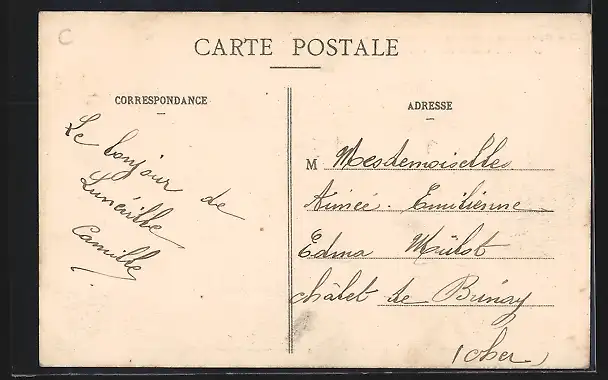 C
CARTE POSTALE
CORRESPONDANCE
Le bonjour de
Lunéville
Camille
ADRESSE
M Mesdemoiselles
Aimée. Emilienne
Edma Mülot
châlet de Brinay
(cher)